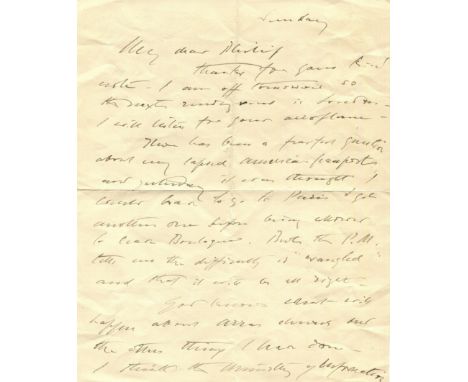 Sunday
My dear Philip
Thanks for your kind
note. I am off tomorrow so
the next rendezvous is London -
I will listen for your aeroplane -
There has been a fearful question
about my lapsed American passport
and yesterday it was thought I
would have to go to Paris & get
another one before being allowed
to leave Boulogne. But the P.M.
tells me the difficulty is "wrangled"
and that it will be all right -
God knows what will
happen about
the other things I have done -
I think the Ministry of Information